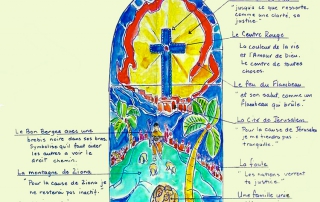 "jusqu'a ce que ressorte,
comme une clarté, sa
justice."
Le Centre Rouge
La couleur de la vie
et l'Amour de Dieu.
Le centre de toutes
choses.
Le feu du Flambeau
"et son salut, comme un
Flambeau qui brûle."
La Cité de Jérusalem
"Pour la cause de Jérusale
je me rendrais pas
tranquille."
La foule
"Les nations verront
ta justice."
Une famille unie
Le Bon Berger avec une
brebis noire dans ses bras.
Symbolise qu'il faut aider
les autres a voir le
droit chemin.
La montagne de Ziona
"Pour la cause de Ziona je
ne resterai pas inactif."